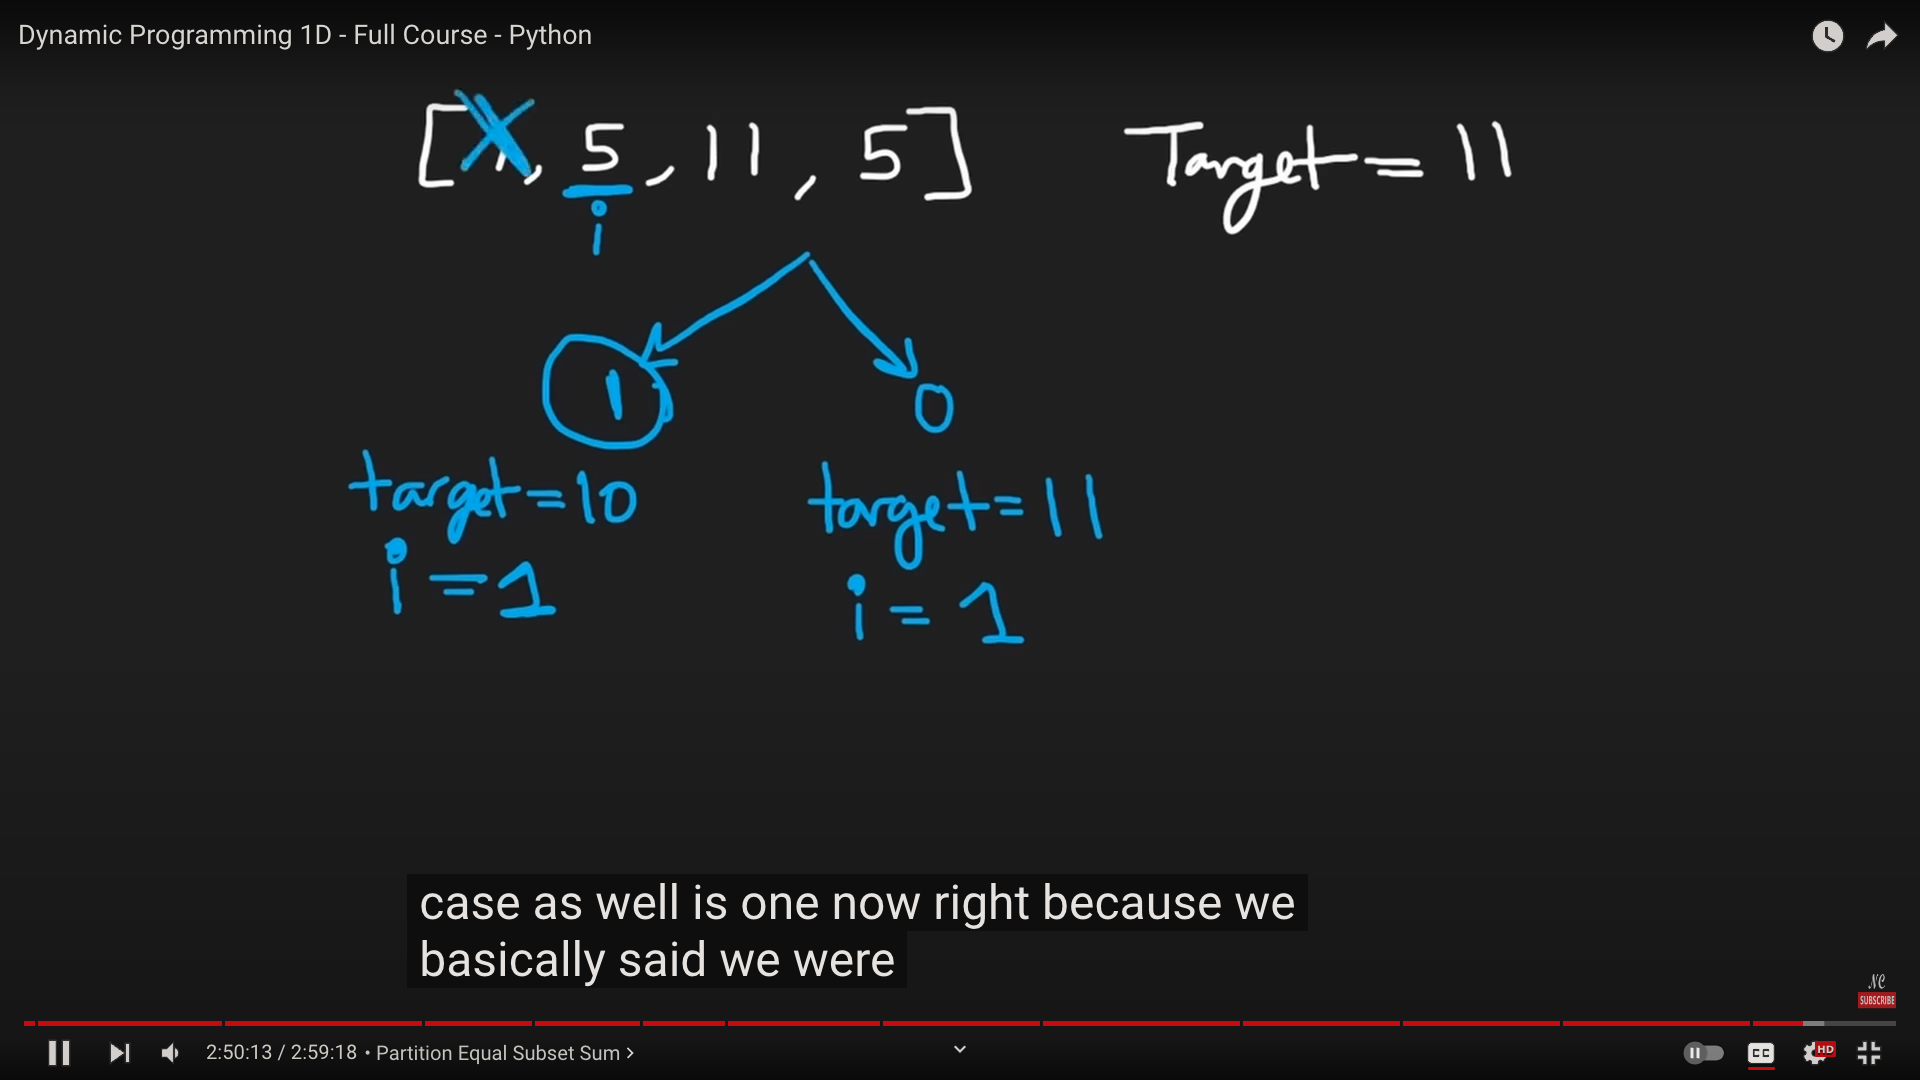 Dynamic Programming 1D - Full Course - Python
[ , 5, 11, 5] Target = 11
i
1 0
target=10 target=11
i=1 i=1
case as well is one now right because we
basically said we were
NC
SUBSCRIBE
2:50:13 / 2:59:18 • Partition Equal Subset Sum >
CC HD